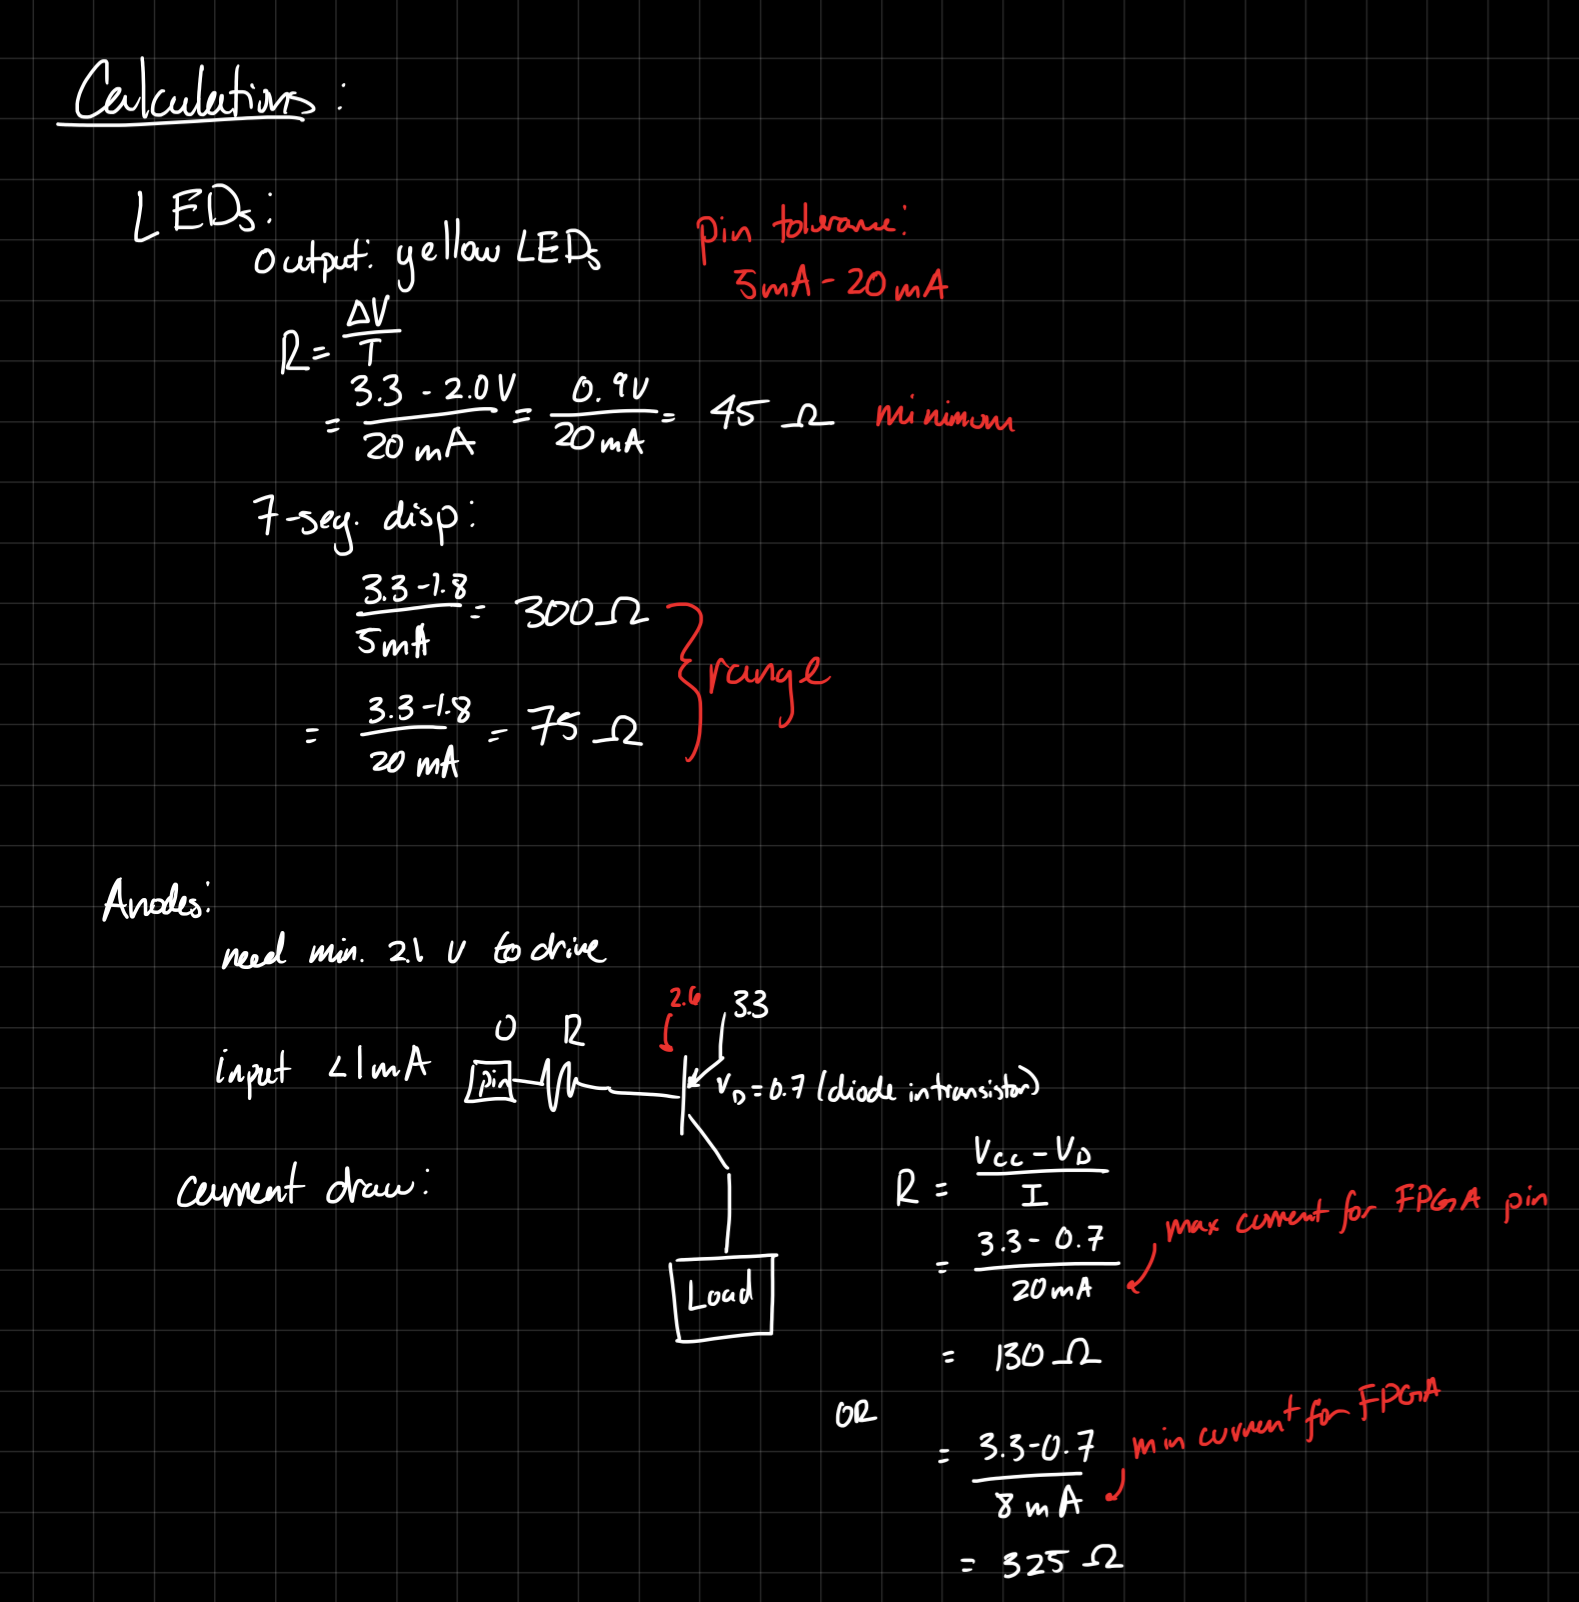 Calculations:
LEDs:
output: yellow LEDs
pin tolerance:
5mA - 20 mA
R = ΔV / I
= 3.3 - 2.0 V / 20 mA = 0.9V / 20 mA = 45 Ω minimum
7-seg. disp:
3.3 - 1.8 / 5mA = 300 Ω
range
= 3.3 - 1.8 / 20 mA = 75 Ω
Anodes:
need min. 2.1 V to drive
2.6 3.3
0 R
input <1mA pin
V_D = 0.7 (diode in transistor)
current draw:
R = V_CC - V_D / I
max current for FPGA pin
= 3.3 - 0.7 / 20 mA
Load
= 130 Ω
OR
min current for FPGA
= 3.3 - 0.7 / 8 mA
= 325 Ω